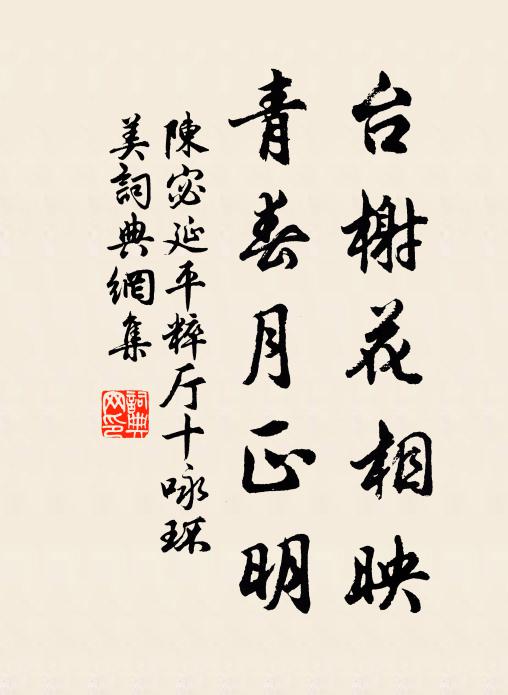 台榭花相映
青春月正明
陳宓延平粹厅十咏环
美詞典網集
詞典网印